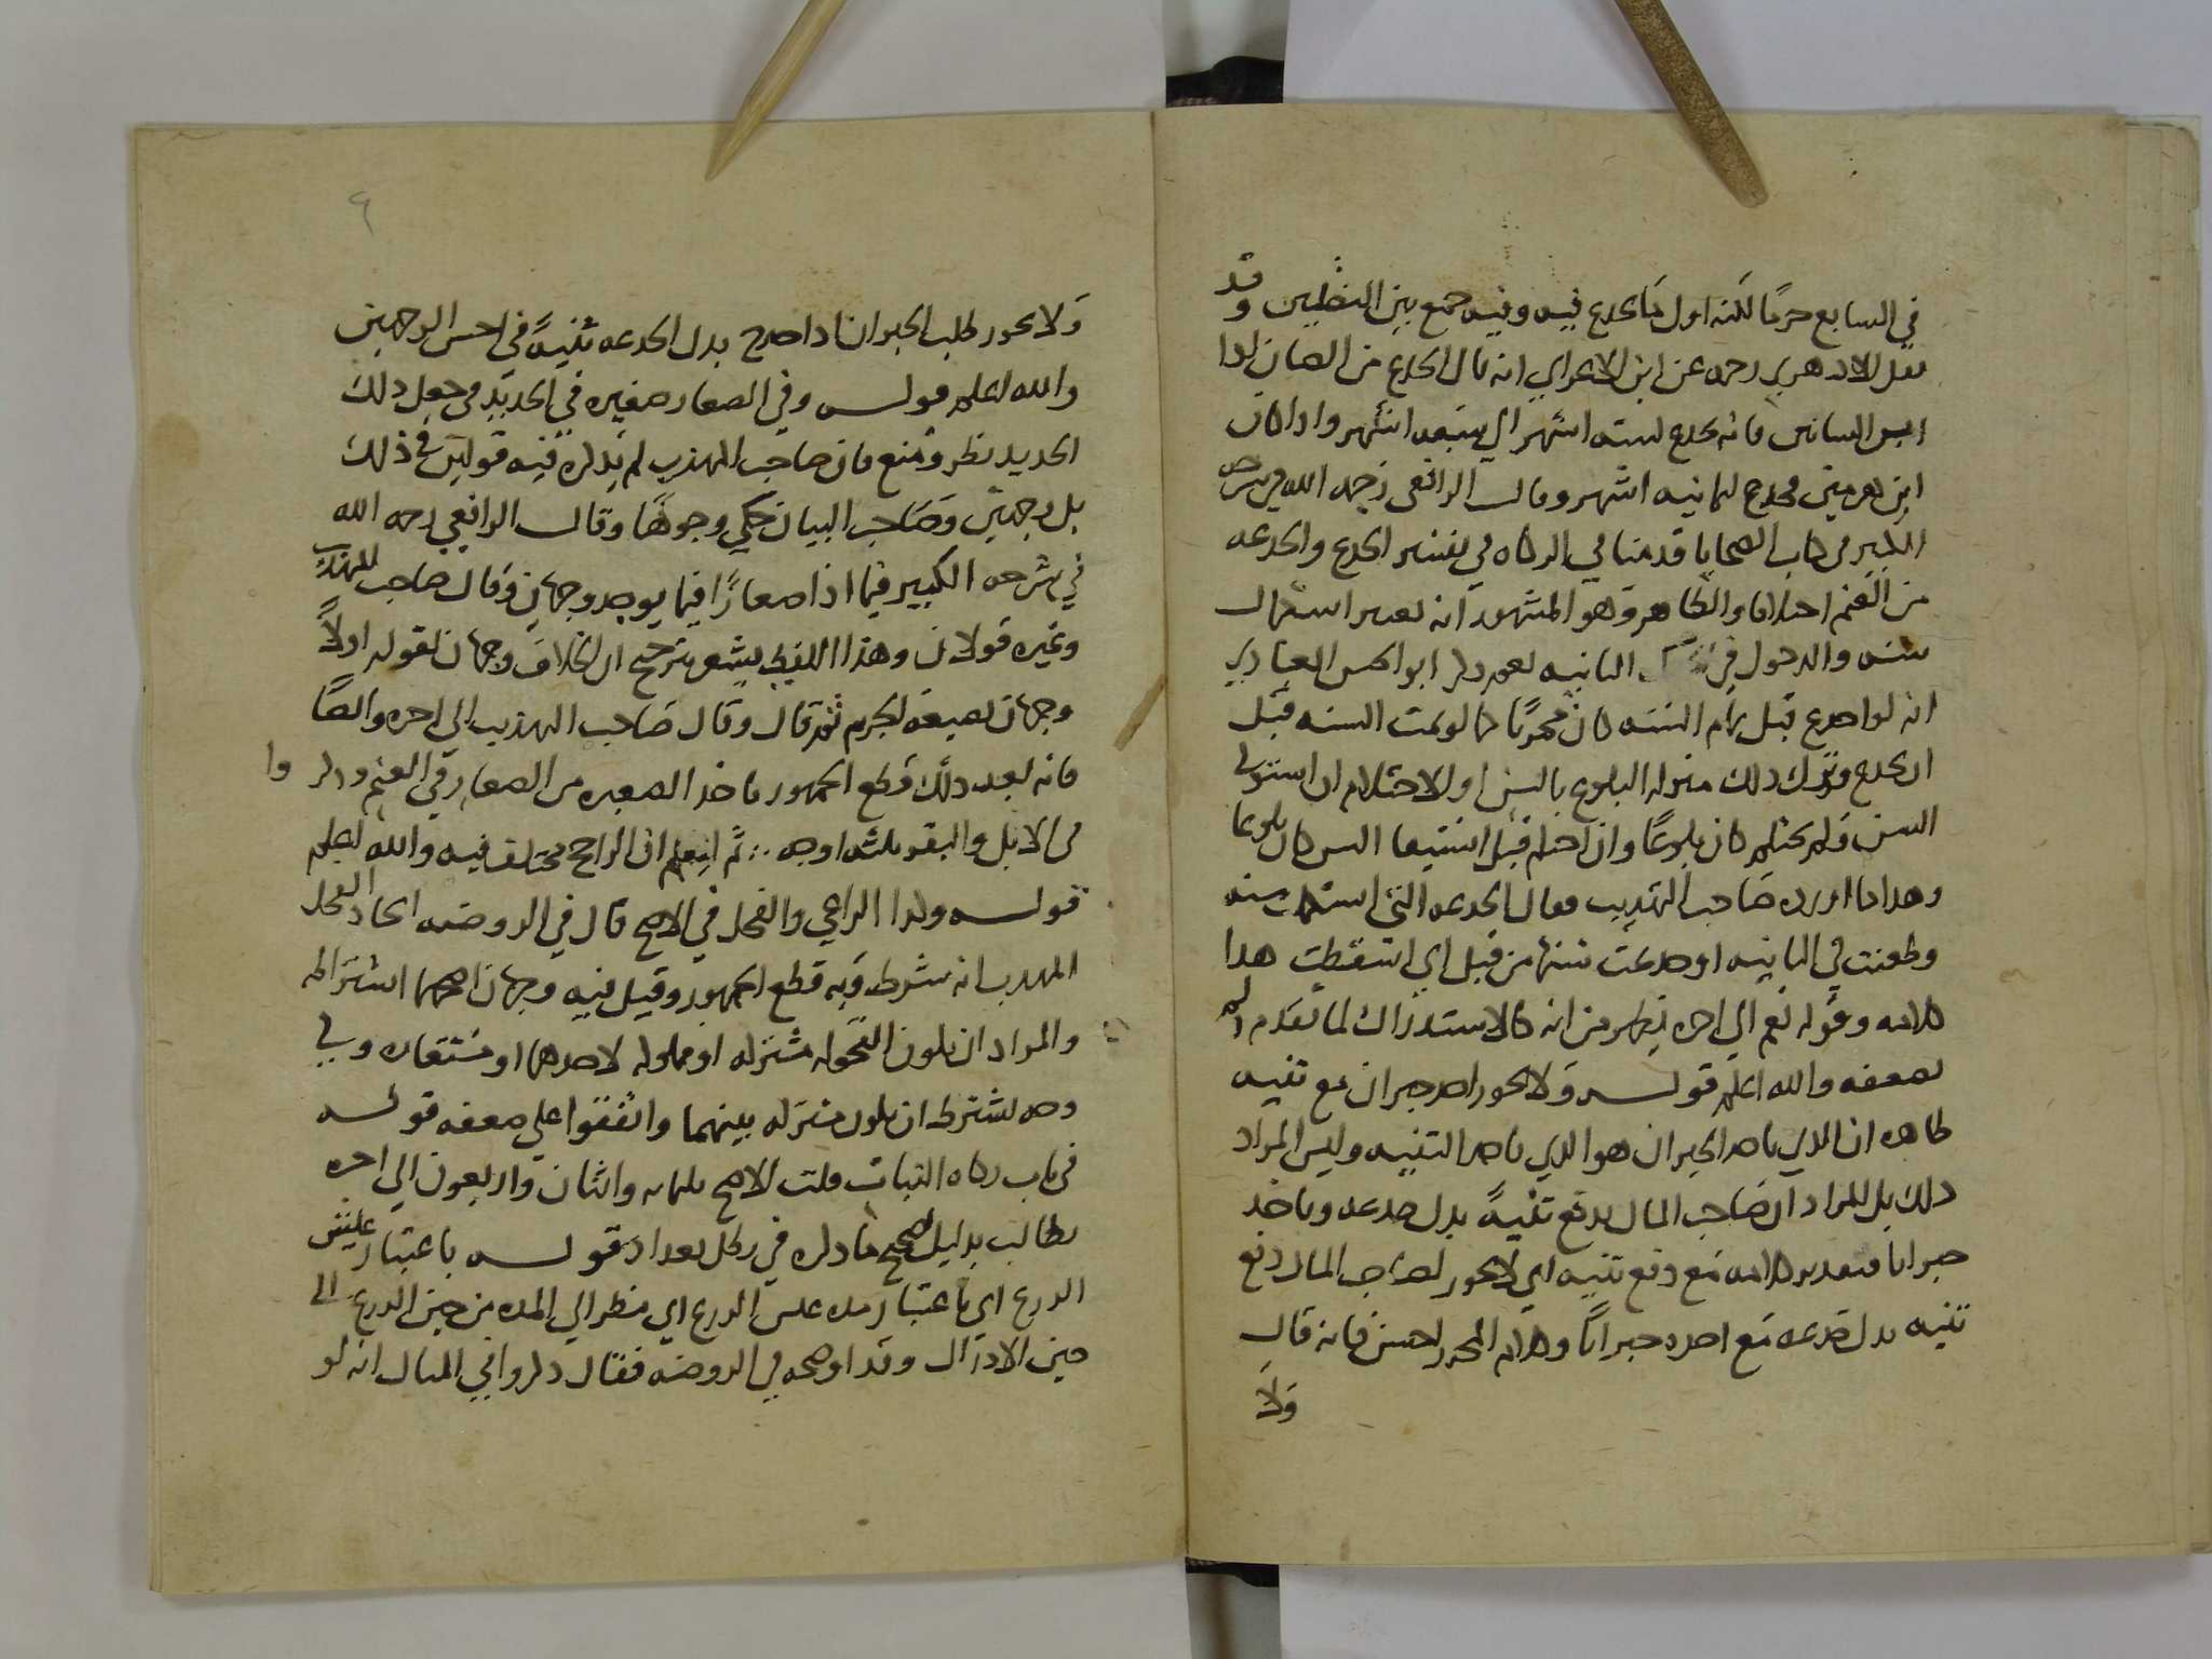 في السابع حزما لكنه اول ما يجدع فيه وفيه جمع بين النظيين وقد
نقل الازهري رحمه عن ابن الاعرابي انه قال الجدع من الضان اذا
ابن اشهر اي ستة اشهر واذا كان
ابن هرمين فيجدع لثمانيه اشهر وقال الرافعي رحمه الله في شرحه
الكبير في كتاب الضحايا قدمنا في الزكاه في تفسير الجدع والجدعه
من الغنم اختلافا والظاهر وهو المشهور انه يعتبر استكمال
سنه والدخول في الثانيه نعم ذكر ابو الحسن العبادي
انه لو اجدع قبل تمام السنه كان مجزيا كما لو تمت السنه قبل
ان يجدع ونزل ذلك منزله البلوغ بالسن او الاحتلام ان استوفي
السن ولم يحتلم كان بلوغا وان احتلم قبل استيفا السن كان بلوغا
وهذا ما اورده صاحب التهذيب فقال الجدعه التي استكملت سنه
وطعنت في الثانيه او جدعت سنها من قبل اي اسقطت هذا
كلامه وقوله نعم الي اخره يظهر من انه كالاستدراك لما تقدم لا
لضعفه والله اعلم قولــه ولا يجوز اخذ جبران مع ثنيه
ظاهره ان الذي ياخذ الجبران هو الذي ياخذ الثنيه وليس المراد
ذلك بل المراد ان صاحب المال يدفع ثنيةً بدل جدعه وياخذ
جبرانا فتقدير كلامه مع دفع ثنيه اي لا يجوز لصاحب المال دفع
ثنيه بدل جدعه مع اخذه جبراناً وكلام المحرر احسن فانه قال
وَلاَ
٩
وَلا يجوز طلب الجبران اذا اخرج بدل الجدعه ثنيةً في احسن الوجهين
والله اعلم قولــه وفي الصغار صغيره في الجديد في جعل ذلك
الجديد نظر ومنع فان صاحب المهذب لم يذكر فيه قولين في ذلك
بل وجهين وصاحب البيان حكي وجوهًا وقال الرافعي رحمه الله
في شرحه الكبير فيما اذا صغارًا فيما يوجد وجهان وقال صاحب المهذب
وغيره قولان وهذا اللفظ يشعر بترجيح ان الخلاف وجهان لقوله اولاً
وجهان بصيغه الجزم ثم قال وقال صاحب المهذب الي اخره وايضًا
فانه بعد ذلك قطع الجمهور باخذ الصغيره من الصغار في الغنم وذكر وا
في الابل والبقر ثلثه اوجه ∴ ثم ليعلم ان الراجح مختلف فيه والله اعلم
قولــه وكذا الراعي والفحل في الاصح قال في الروضه اتحاد الفحل
المذهب انه شرط وبه قطع الجمهور وقيل فيه وجهان اصحهما اشتراطه
والمراد ان تكون الفحوله مشتركه او مملوكه لاحدهما او مستعاره وفي
وجه يشترط ان يكون مشتركه بينهما واتفقوا علي ضعفه قولــه
في باب زكاه النبات قلت الاصح ثلثمايه واثنان واربعون الي اخره
يطالب بدليل تصحيح ما ذكره في رطل بغداد قولــه باعتبار علفين
الزرع اي باعتبار مده عيش الزرع اي ينظر الي المده من حين الزرع الي
حين الادراك وقد اوضحه في الروضه فقال ذكروا في المثال انه لو